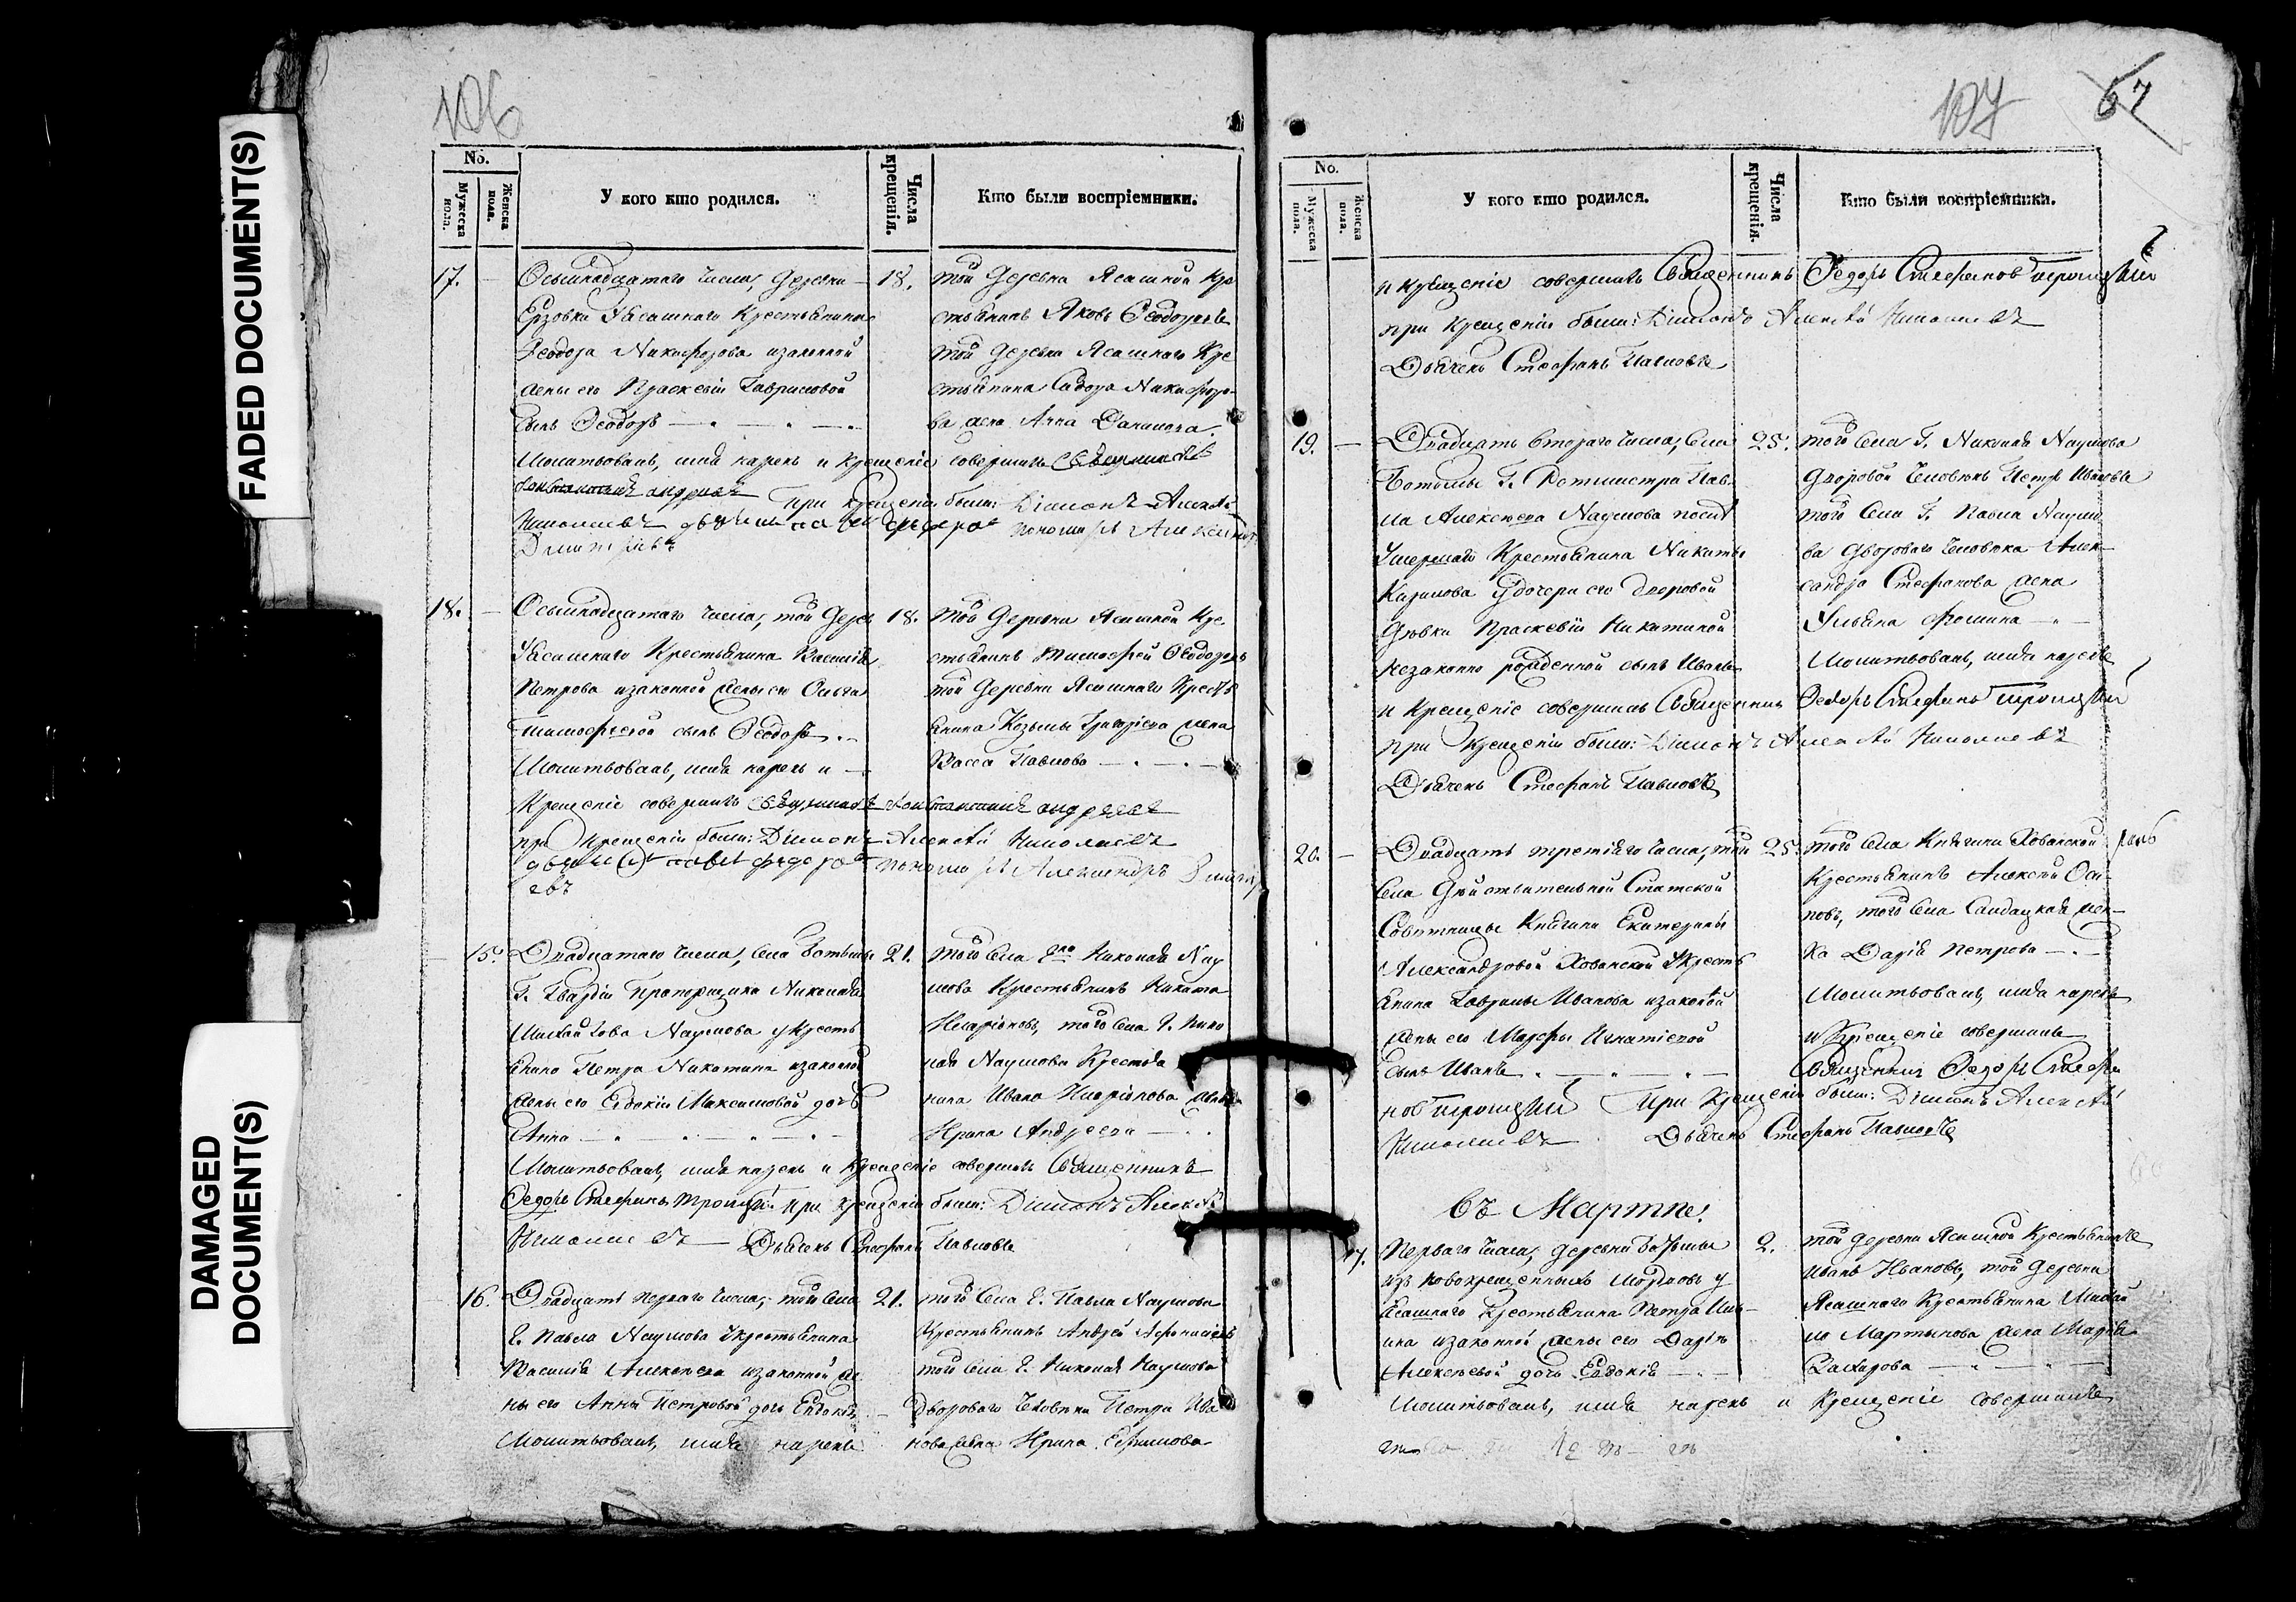 FADED DOCUMENT(S)
DAMAGED DOCUMENT(S)
106
No.
Мужеска пола.
Женска пола.
У кого кто родился.
Числа крещенія.
Кто были воспріемники.
17.
Осьмнадцатаго числа, деревни
Ерзовки Уясашнаго Крестьянина
Феодора Никифорова изаконной
жены его Праскевіи Гавриловой
сынъ Феодоръ
18.
той деревни Ясашной Кре
стьянинъ Яковъ Феодоровъ
той деревни Ясашнаго Кре
стьянина Сидора Никифоро
ва жена Анна Данилова.
Молитвовалъ, имя нарекъ и крещеніе совершилъ Священникъ
Константинъ Андреевъ При крещеніи были: Діаконъ Алексѣй
Николаевъ дьячекъ Савел Федоровъ пономарь Александръ
Дмитріевъ
18.
Осьмнадцатаго числа, той дерев
Уясашнаго Крестьянина Василія
Петрова изаконной жены его Ольги
Тимофеевой сынъ Феодоръ
Молитвовалъ, имя нарекъ и
18.
той деревни Ясашной Кре
стьянинъ Тимофей Феодоровъ
той деревни Ясашнаго Кресть
янина Козьмы Григорьева жена
Васса Павлова
Крещеніе совершилъ Священникъ Константинъ Андреевъ
при крещеніи были: Діаконъ Алексѣй Николаевъ
дьячекъ Савел Федоровъ пономарь Александръ Дмитрі
евъ
15.
Двадцатаго числа, села Ботьмы
Г. Гвардіи Прапорщика Николая
Михайлова Наумова укресть
янина Петра Никитина изаконной
жены его Евдокіи Максимовой дочь
Анна
21.
того села Г. Николая Нау
мова Крестьянинъ Никита
Иларіоновъ, того села Г. Нико
лая Наумова Крестья
нина Ивана Иларіонова жена
Ирина Андреева
Молитвовалъ, имя нарекъ и крещеніе совершилъ Священникъ
Федоръ Стефановъ Троицкій при крещеніи были: Діаконъ Алексѣй
Николаевъ Дьячекъ Стефанъ Павловъ
16.
Двадцать перваго числа, того села
Г. Павла Наумова укрестьянина
Василія Алексеева изаконной же
ны его Анны Петровой дочь Евдокія
Молитвовалъ, имя нарекъ
21.
того села Г. Павла Наумова
Крестьянинъ Андрей Афонасіевъ
того села Г. Николая Наумова
Дворового человека Петра Ива
нова жена Ирина Ефимова
107
67
No.
Мужеска пола.
Женска пола.
У кого кто родился.
Числа крещенія.
Кто были воспріемники.
и крещеніе совершилъ Священникъ Федоръ Стефановъ Троицкій
при крещеніи были: Діаконъ Алексѣй Николаевъ
Дьячекъ Стефанъ Павловъ
19.
Двадцать втораго числа, села
Ботьмы Г. Ротмистра Пав
ла Алексеева Наумова послѣ
Умершаго Крестьянина Никиты
Карпова Удочери его дворовой
девки Праскевіи Никитиной
незаконно рожденной сынъ Иванъ
25.
того села Г. Николая Наумова
дворовой человекъ Петръ Ивановъ
того села Г. Павла Наумо
ва дворового человека Алек
сандра Стефанова жена
Ульяна Фомина
Молитвовалъ, имя нарекъ
и крещеніе совершилъ Священникъ Федоръ Стефановъ Троицкій
при крещеніи были: Діаконъ Алексѣй Николаевъ
Дьячекъ Стефанъ Павловъ
20.
Двадцать третіяго числа, того
села Дѣйствительной Статской
Совѣтницы Княгини Екатерины
Александровой Хованской Укресть
янина Гаврилы Иванова изаконной
жены его Марфы Игнатіевой
сынъ Иванъ
25.
того села Княгини Хованской
Крестьянинъ Алексей Оси
повъ, того села Солдацкая жен
ка Дарія Петрова
Молитвовалъ, имя нарекъ
и Крещеніе совершилъ
Священникъ Федоръ Стефа
новъ Троицкій При Крещеніи были: Діаконъ Алексѣй
Николаевъ Дьячекъ Стефанъ Павловъ
Въ Мартѣ.
17.
Перваго числа, деревни Ботьмы
изъ новокрещенныхъ Мордовъ у
Ясашнаго Крестьянина Петра
изаконной жены его Даріи
Алексеевой дочь Евдокія
2.
той деревни Ясашной Крестьянинъ
Иванъ Ивановъ, той деревни
Ясашнаго Крестьянина Михай
ла Мартынова жена Марія
Захарова
Молитвовалъ, имя нарекъ и Крещеніе совершилъ